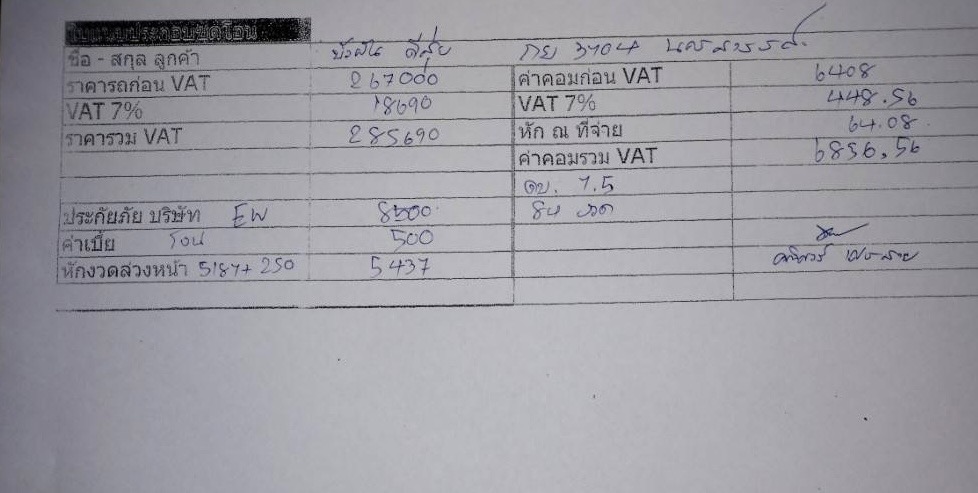 ใบแนบประกอบชุดโอน
ชื่อ - สกุล ลูกค้า กย 3704 นครสวรรค์
ราคารถก่อน VAT 267000 ค่าคอมก่อน VAT 6408
VAT 7% 18690 VAT 7% 448.56
ราคารวม VAT 285690 หัก ณ ที่จ่าย 64.08
ค่าคอมรวม VAT 6856.56
ดบ. 7.5
ประกันภัย บริษัท EW 8500 84 งวด
ค่าเบี้ย โอน 500
หักงวดล่วงหน้า 5187+250 5437